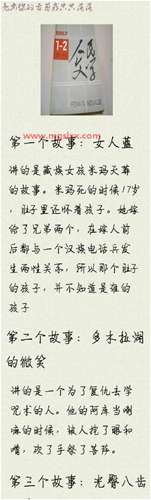 1-2
人民文学
www.
第一个故事：女人蓝
讲的是藏族女孩米玛天尊
的故事。米玛死的时候17岁
，肚子里还怀着孩子。她嫁
给了兄弟两个，在嫁人前
后都与一个汉族电话兵发
生两性关系，所以那个肚子
的孩子，并不知道是谁的
孩子
第二个故事：多木拉湖
的微笑
讲的是一个为了复仇去学
咒术的人。他的阿库当喇
嘛的时候，被人挖了眼和
嘴，砍了手祭了菩萨。
第三个故事：光臀八齿